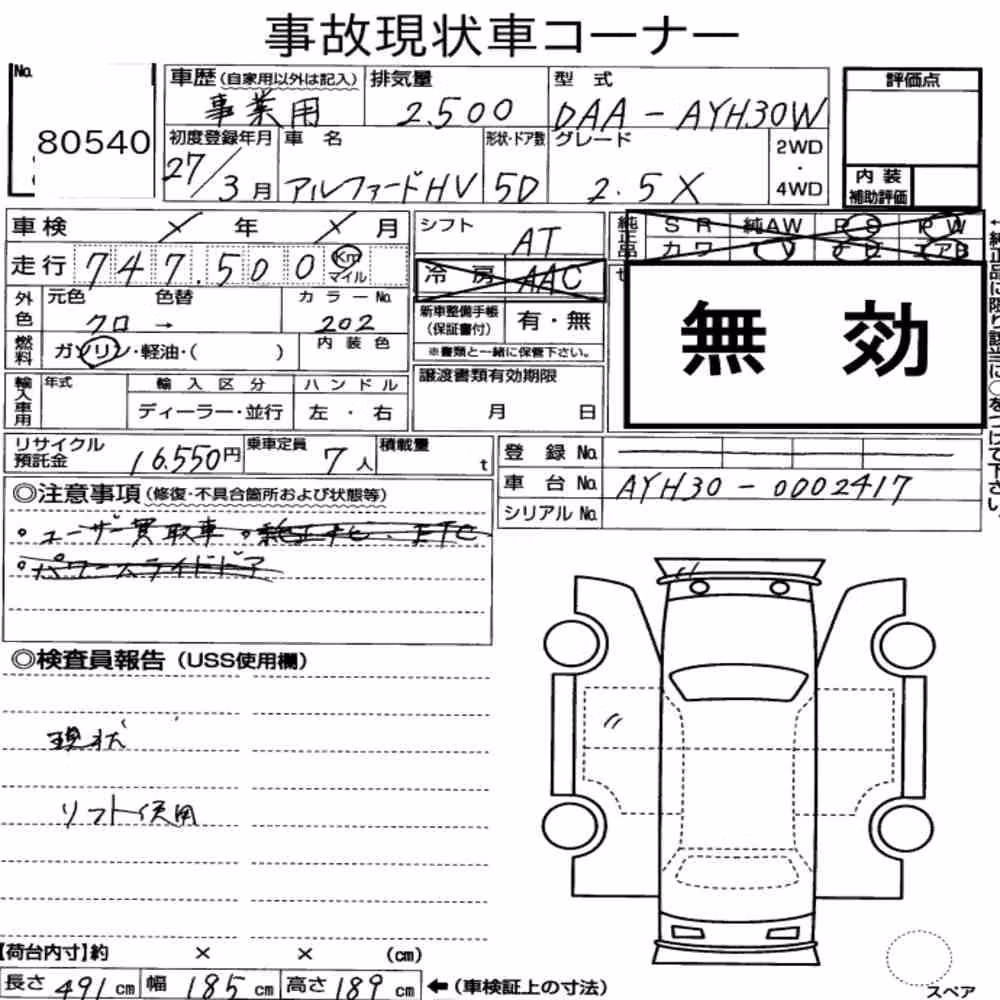 事故現状車コーナー
No.
80540
車歴 (自家用以外は記入) 排気量 型式 評価点
事業用 2.500 DAA-AYH30W
初度登録年月 車名 形状・ドア数 グレード 2WD・4WD 内装補助評価
27/3月 アルファードHV 5D 2.5X
車検 × 年 × 月 シフト AT
純正品 SR 純AW PS PW
カワ TV ナビ エアB
走行 747.500 Km マイル 冷房 AAC
無効
外色 元色 色替 カラーNo. 新車整備手帳(保証書付) 有・無
クロ → 202
燃料 ガソリン・軽油・( ) 内装色 ※書類と一緒に保管下さい。
輸入車用 年式 輸入区分 ハンドル 譲渡書類有効期限
ディーラー・並行 左・右 月 日
リサイクル預託金 16.550円 乗車定員 7人 積載量 t 登録No.
車台No. AYH30-0002417
シリアルNo.
◎注意事項 (修復・不具合箇所および状態等)
・ユーザー買取車 ・純正ナビ、ETC
・パワースライドドア
◎検査員報告 (USS使用欄)
現状
リフト使用
【荷台内寸】約 × × (cm)
長さ 491 cm 幅 185 cm 高さ 189 cm ←(車検証上の寸法)
スペア